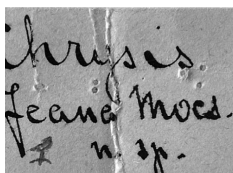 Chrysis
Jeane Mocs.
n. sp.